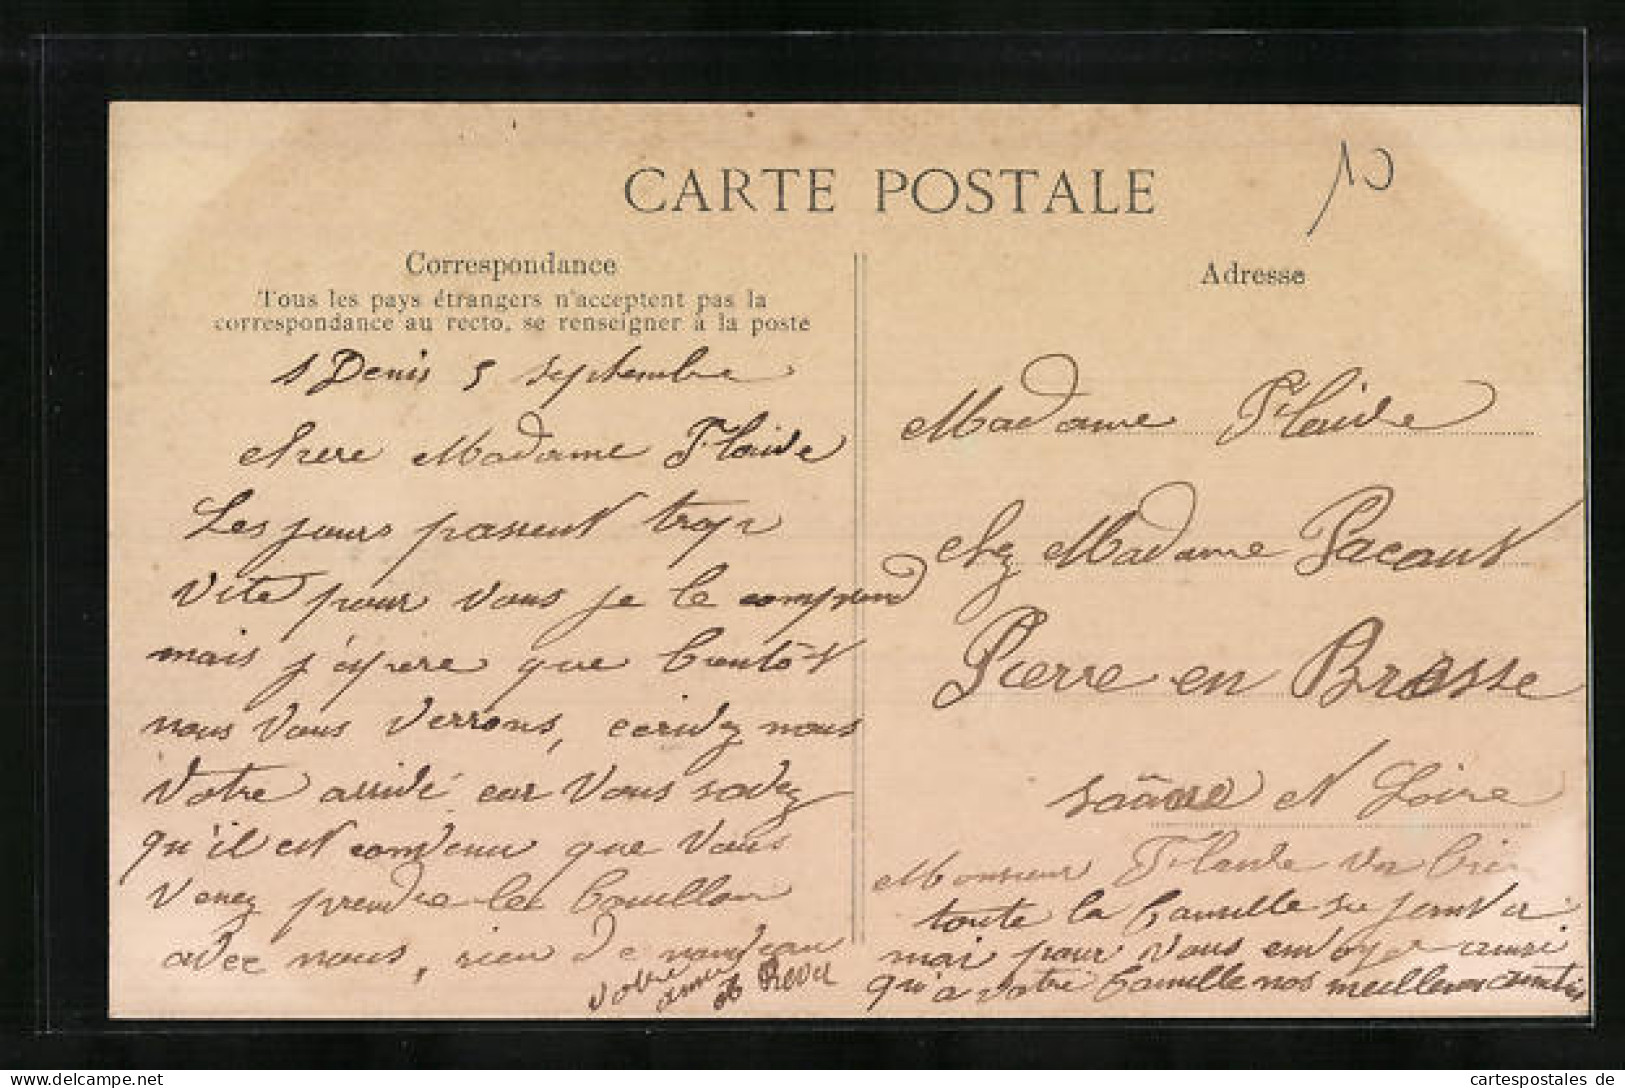 CARTE POSTALE
10
Correspondance
Tous les pays étrangers n'acceptent pas la
correspondance au recto, se renseigner à la poste
s Denis 5 septembre
chere Madame Flaive
Les jours passent trop
vite pour vous je le comprend
mais j'espere que bientôt
nous vous verrons, ecrivez nous
votre arrivé car vous savez
qu'il est convenu que vous
venez prendre le bouillon
avec nous, rien de nouveau
votre amie
Adresse
Madame Flaive
chez Madame Pacaut
Pierre en Brasse
saône et Loire
Monsieur Flaive va bien
toute la famille se joint a
moi pour vous envoyer ainsi
qu'a votre famille nos meilleures amitiés
cartespostales de